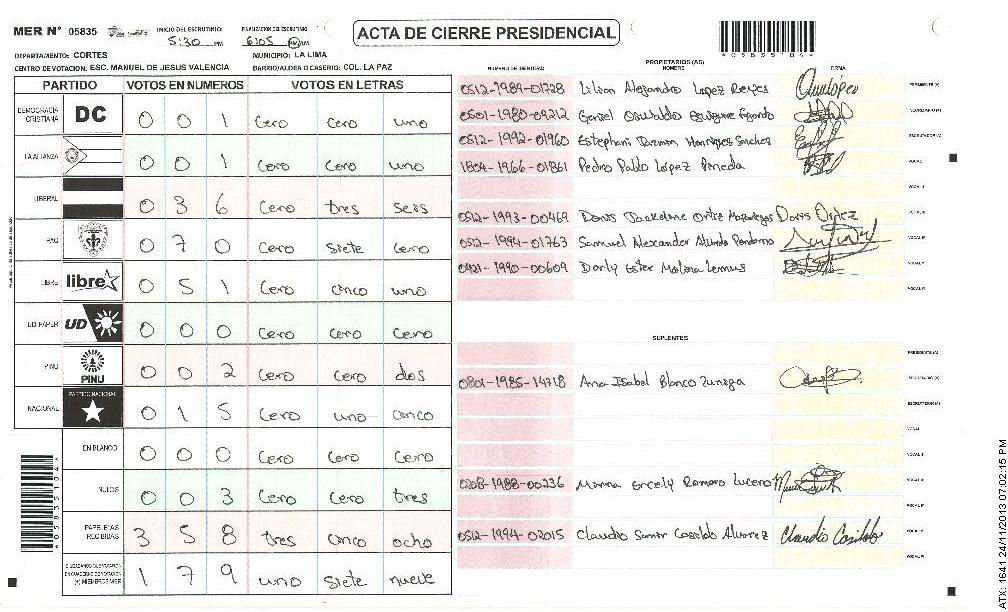 MER N° 05835
INICIO DEL ESCRUTINIO: 5:30 PM
FINALIZACION DEL ESCRUTINIO: 6:05 PM/AM
ACTA DE CIERRE PRESIDENCIAL
DEPARTAMENTO: CORTES
MUNICIPIO: LA LIMA
CENTRO DE VOTACION: ESC. MANUEL DE JESUS VALENCIA
BARRIO/ALDEA O CASERIO: COL. LA PAZ
PARTIDO VOTOS EN NUMEROS VOTOS EN LETRAS
DEMOCRACIA CRISTIANA DC 0 0 1 Cero Cero uno
LA ALIANZA 0 0 1 Cero Cero uno
LIBERAL 0 3 6 Cero tres seis
PAC 0 7 0 Cero siete cero
LIBRE libre 0 5 1 Cero cinco uno
UD-FAPER UD 0 0 0 Cero Cero Cero
PINU PINU 0 0 2 Cero Cero dos
NACIONAL PARTIDO NACIONAL 0 1 5 Cero uno cinco
EN BLANCO 0 0 0 Cero Cero Cero
NULOS 0 0 3 Cero Cero tres
PAPELETAS RECIBIDAS 3 5 8 tres cinco ocho
CIUDADANOS QUE VOTARON EN CUADERNO DE VOTACION (+) MIEMBROS MER 1 7 9 uno siete nueve
PROPIETARIOS (AS)
NUMERO DE IDENTIDAD NOMBRE FIRMA
0512-1989-01728 Lilian Alejandra Lopez Reyes PRESIDENTE (A)
0501-1980-09212 SECRETARIO (A)
0512-1992-01960 Estephani Henriquez Sanchez ESCRUTADOR (A)
1804-1966-01861 Pedro Pablo López Pineda VOCAL I
VOCAL II
0512-1993-00469 Doris Jackelene Ortez Doris Ortez VOCAL III
0512-1994-01763 Samuel Alexander VOCAL IV
0421-1990-00609 Darly Ester Molina Lemus VOCAL V
VOCAL VI
SUPLENTES
PRESIDENTE (A)
0801-1985-14718 Ana Isabel Blanco Zuniga SECRETARIO (A)
ESCRUTADOR (A)
VOCAL I
VOCAL II
0208-1988-00236 Romero Lucero VOCAL III
VOCAL IV
0512-1994-02015 Claudio Alvarez VOCAL V
VOCAL VI
ATX: 1641 24/11/2013 07:02:15 PM